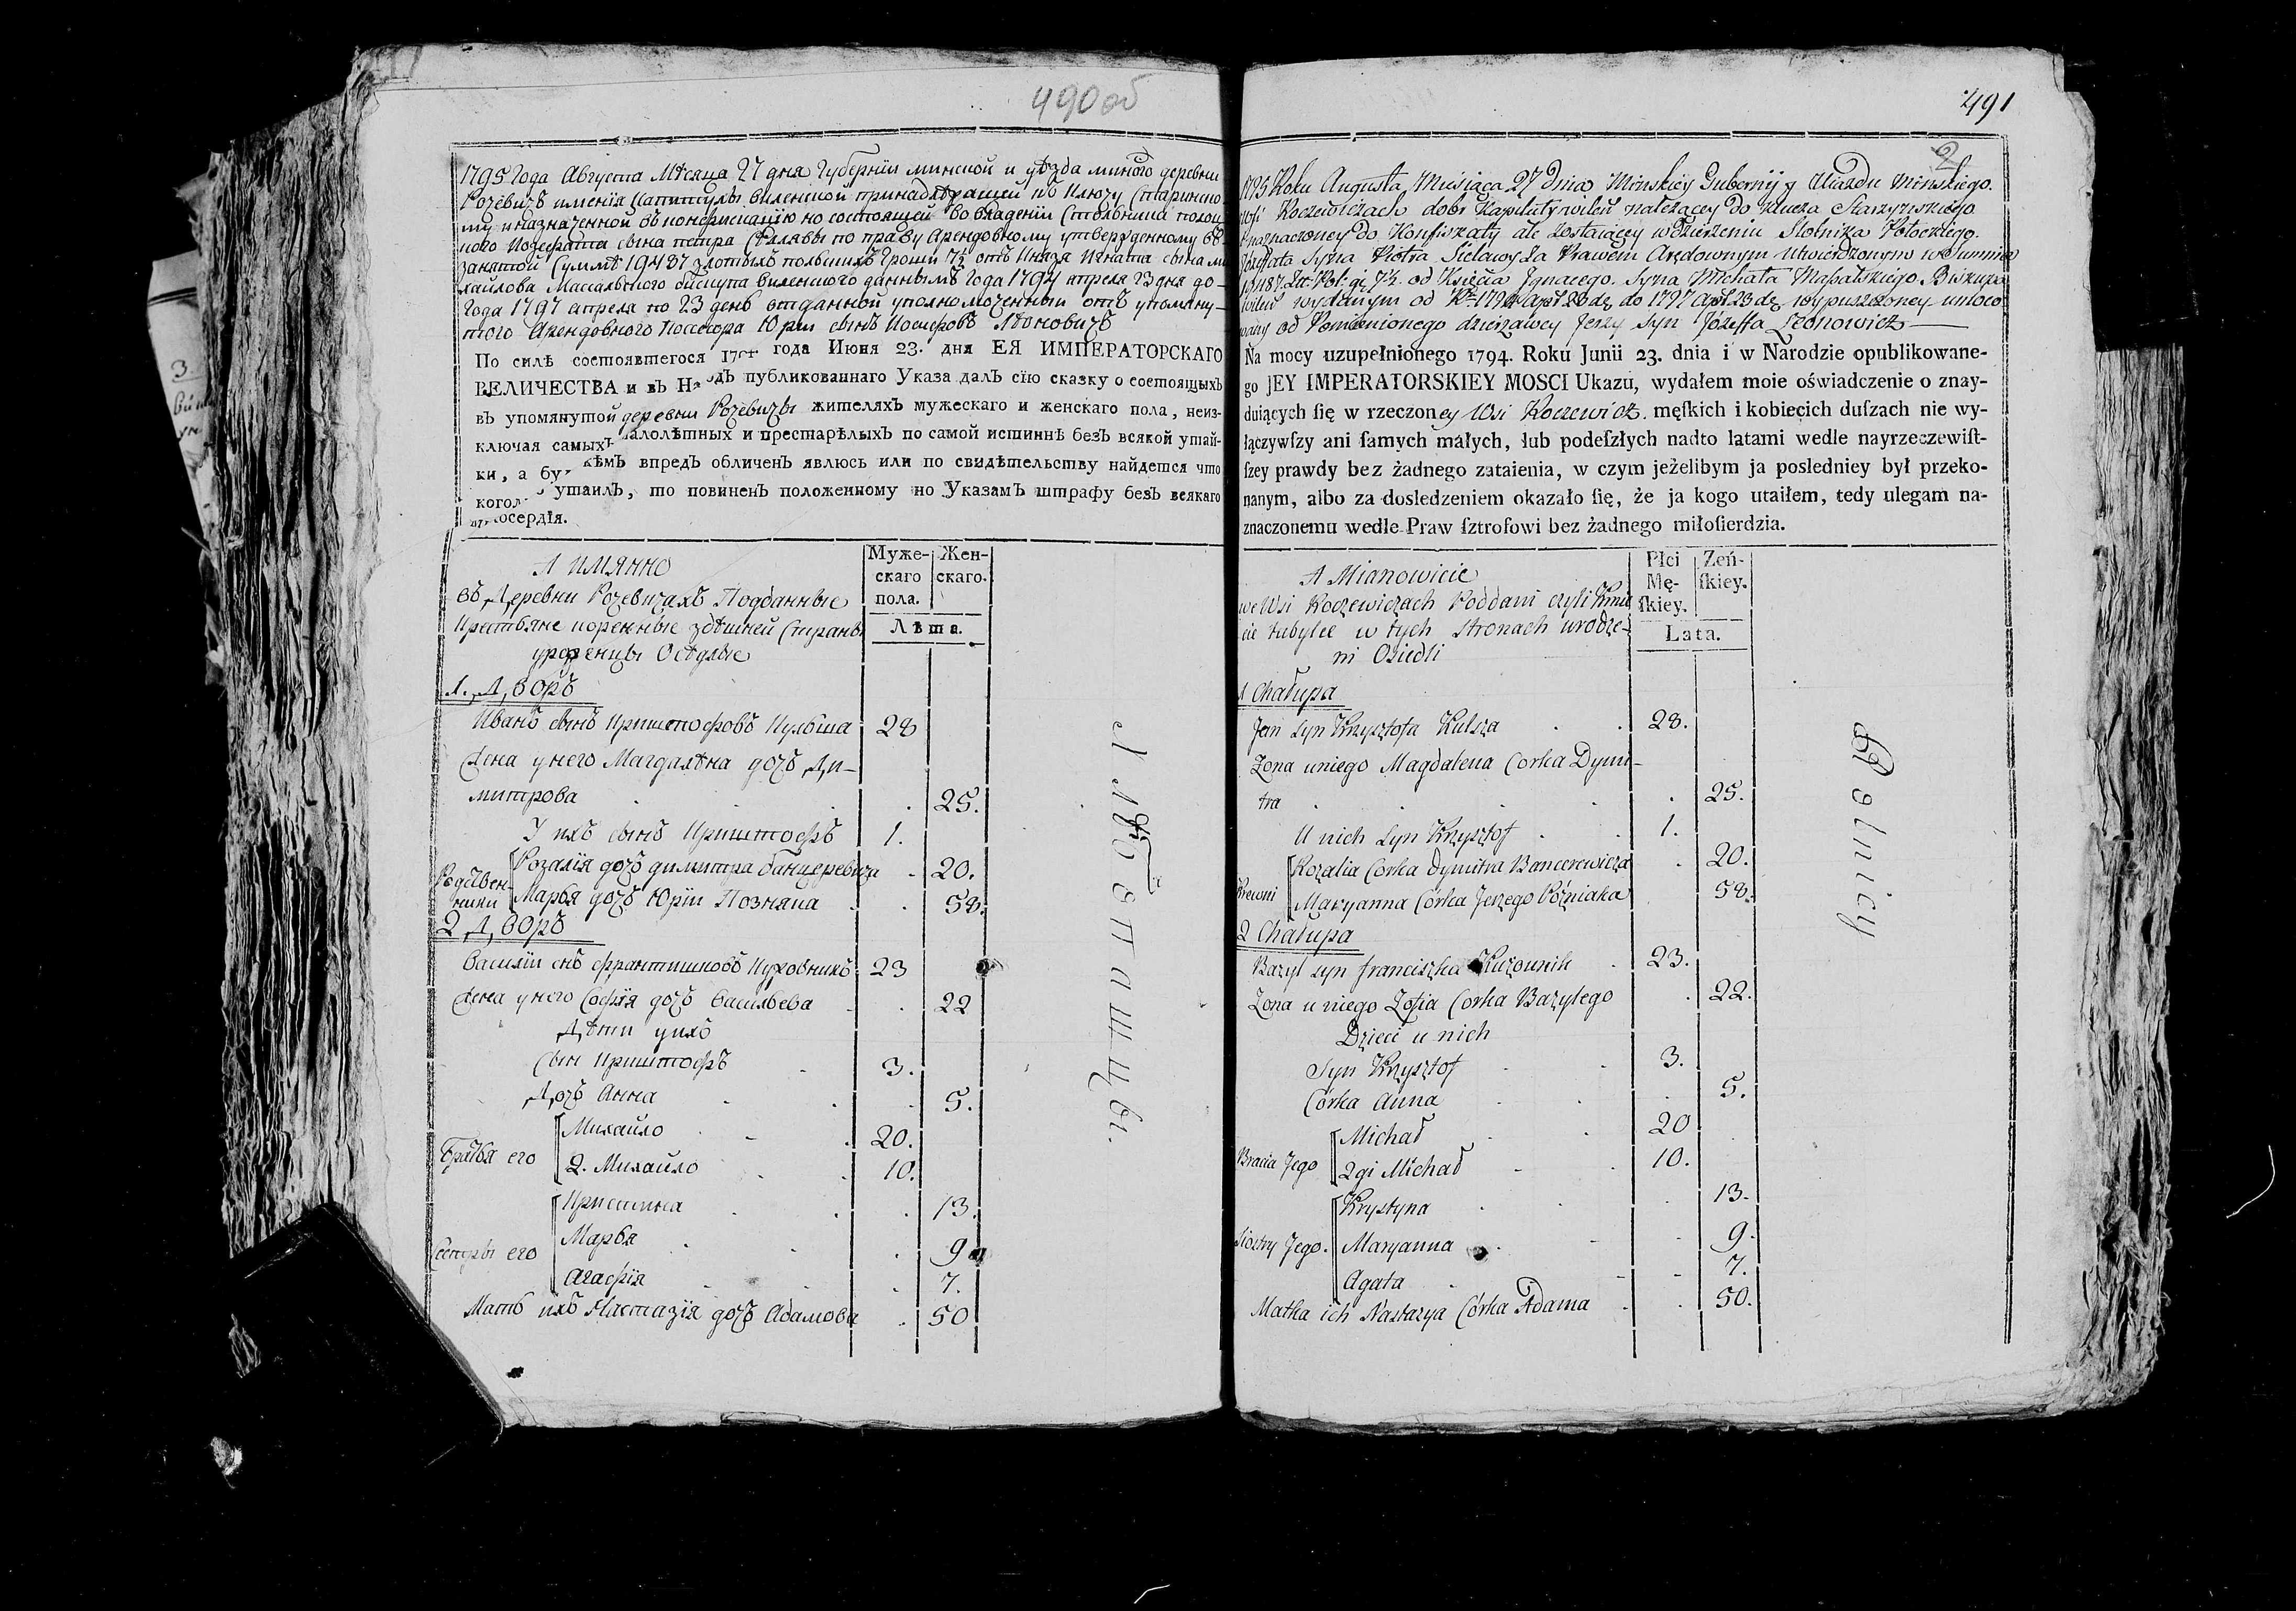 490 об
1795 Года Августа Мѣсяца 27 дня Губернїи минской и уѣзда минского деревни
Рочевичъ имѣнїя Капитулы виленской принадлѣжащей къ Ключу Старинско-
му и назначенной въ конфискацїю но состоящей во владенїи Стольника полоц-
кого Иозефата сына петра Сѣлявы по праву Арендовному утвержденному въ
занятой Суммѣ 19487 злотыхъ польскихъ Грошей 7½ отъ Князя Игната сына ми-
хайлова Массальского бискупа виленского даннымъ Года 1794 апреля 23 дня до-
Года 1797 апреля по 23 день отданной уполномоченный отъ упомяну-
того Арендовного посесора Юрїи сынъ Иосифовъ Лѣоновичъ
По силѣ состоявшегося года Июня 23. дня ЕЯ ИМПЕРАТОРСКАГО
ВЕЛИЧЕСТВА и въ публикованнаго Указа далъ сїю сказку о состоящыхъ
въ упомянутой деревни Рочевичы жителяхъ мужескаго и женскаго пола, неиз-
ключая самыхъ малолѣтныхъ и престарѣлыхъ по самой истиннѣ безъ всякой утай-
ки, а впредъ обличенъ явлюсь или по свидѣтельству найдется что
утаилъ, то повиненъ положенному по Указамъ штрафу безъ всякаго
милосердїя.
А имянно
въ Деревни Рочевичахъ Подданные
крестьяне коренные здѣшней Страны
урозженцы Осѣдлые
Муже-скаго пола. Жен-скаго.
Лѣта.
1. Дворъ
Иванъ сынъ криштофовъ Кульша 28
Жена у него Магдалѣна дочь Ди-
митрова 25.
У ихъ сынъ Криштофъ 1.
Родствен-ники Розалїя дочь димитра банцеревича 20.
Марья дочь Юрїи Позняка 58.
2 Дворъ
Василїи снъ франтишковъ Куховникъ 23
Жена у него Софїя дочь васильева 22
Дѣти у ихъ
Сын криштофъ 3.
Дочь Анна 5.
Братья его Михайло 20.
2. Михайло 10.
Сестры его Кристина 13.
Марья 9
Агафїя 7.
Мать ихъ Настазїя дочь Адамова 50
491
2
1795 Roku Augusta Miesiąca 27 Dnia Minskiey Gubernij y Uiazdu Minskiego.
wsi Koczewiczach dobr Kapituły wileń należącey do klucza Starzynskiego
naznaczoney do Konfiskaty ale zostaiącey w dzierżeniu Stolnika Połockiego.
Jozeffata Syna Piotra Sielawy za Prawem Arędownym Utwierdzonym w Summie
19487 Złł: Pol: gr 7½ od Księcia Jgnacego. Syna Michała Massalskiego Biskupa
wileń wydanym od Rku 1794 Apl 23 dę do 1797 Apl 23 dę wypuszczoney umoco-
wany od Pomienionego dzierżawcy Jerzy Syn Jozeffa Leonowicz
Na mocy uzupełnionego 1794. Roku Junii 23. dnia i w Narodzie opublikowane-
go JEY IMPERATORSKIEY MOSCI Ukazu, wydałem moie oświadczenie o znay-
duiących ſię w rzeczoney Wsi Koczewicz. męſkich i kobiecich duſzach nie wy-
łączywſzy ani ſamych małych, lub podeſzłych nadto latami wedle nayrzeczewiſt-
ſzey prawdy bez żadnego zataienia, w czym jeżelibym ja posledniey był przeko-
nanym, albo za dosledzeniem okazało ſię, że ja kogo utaiłem, tedy ulegam na-
znaczonemu wedle Praw ſztrofowi bez żadnego miłoſierdzia.
A Mianowicie
we Wsi Koczewiczach Poddani czyli Kmie-
cie tubylce w tych stronach urodze-
ni Osiedli
Płci Mę-ſkiey. Zeń-ſkiey.
Lata.
1 Chałupa
Jan Syn Krzysztofa Kulsza 28.
Zona u niego Magdalena Corka Dymi-
tra 25.
U nich Syn Krzysztof 1.
Krewni Rozalia Corka Dymitra Bancerewicza 20.
Maryanna Corka Jerzego Pozniaka 58.
2 Chałupa
Bazyl Syn franciszka Kuchownik 23.
Zona u niego Zofia Corka Bazylego 22.
Dzieci u nich
Syn Krzysztof 3.
Córka Anna 5.
Bracia Jego Michał 20
2gi Michał 10.
Siostry Jego. Krystyna 13.
Maryanna 9.
Agata 7.
Matka ich Nastazya Córka Adama 50.
Rolnicy